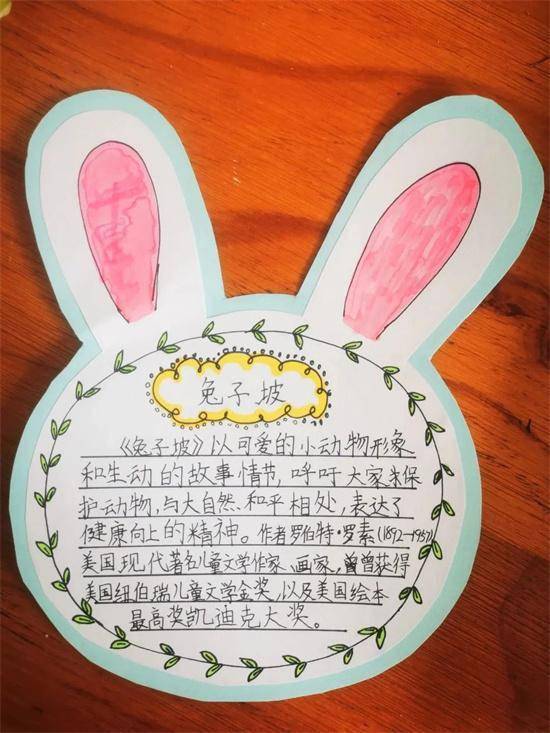 兔子坡
《兔子坡》以可爱的小动物形象
和生动的故事情节,呼吁大家保
护动物,与大自然和平相处,表达了
健康向上的精神。作者罗伯特·罗素(1892—1957)
美国现代著名儿童文学作家、画家,曾曾获得
美国纽伯瑞儿童文学金奖,以及美国绘本
最高奖凯迪克大奖。